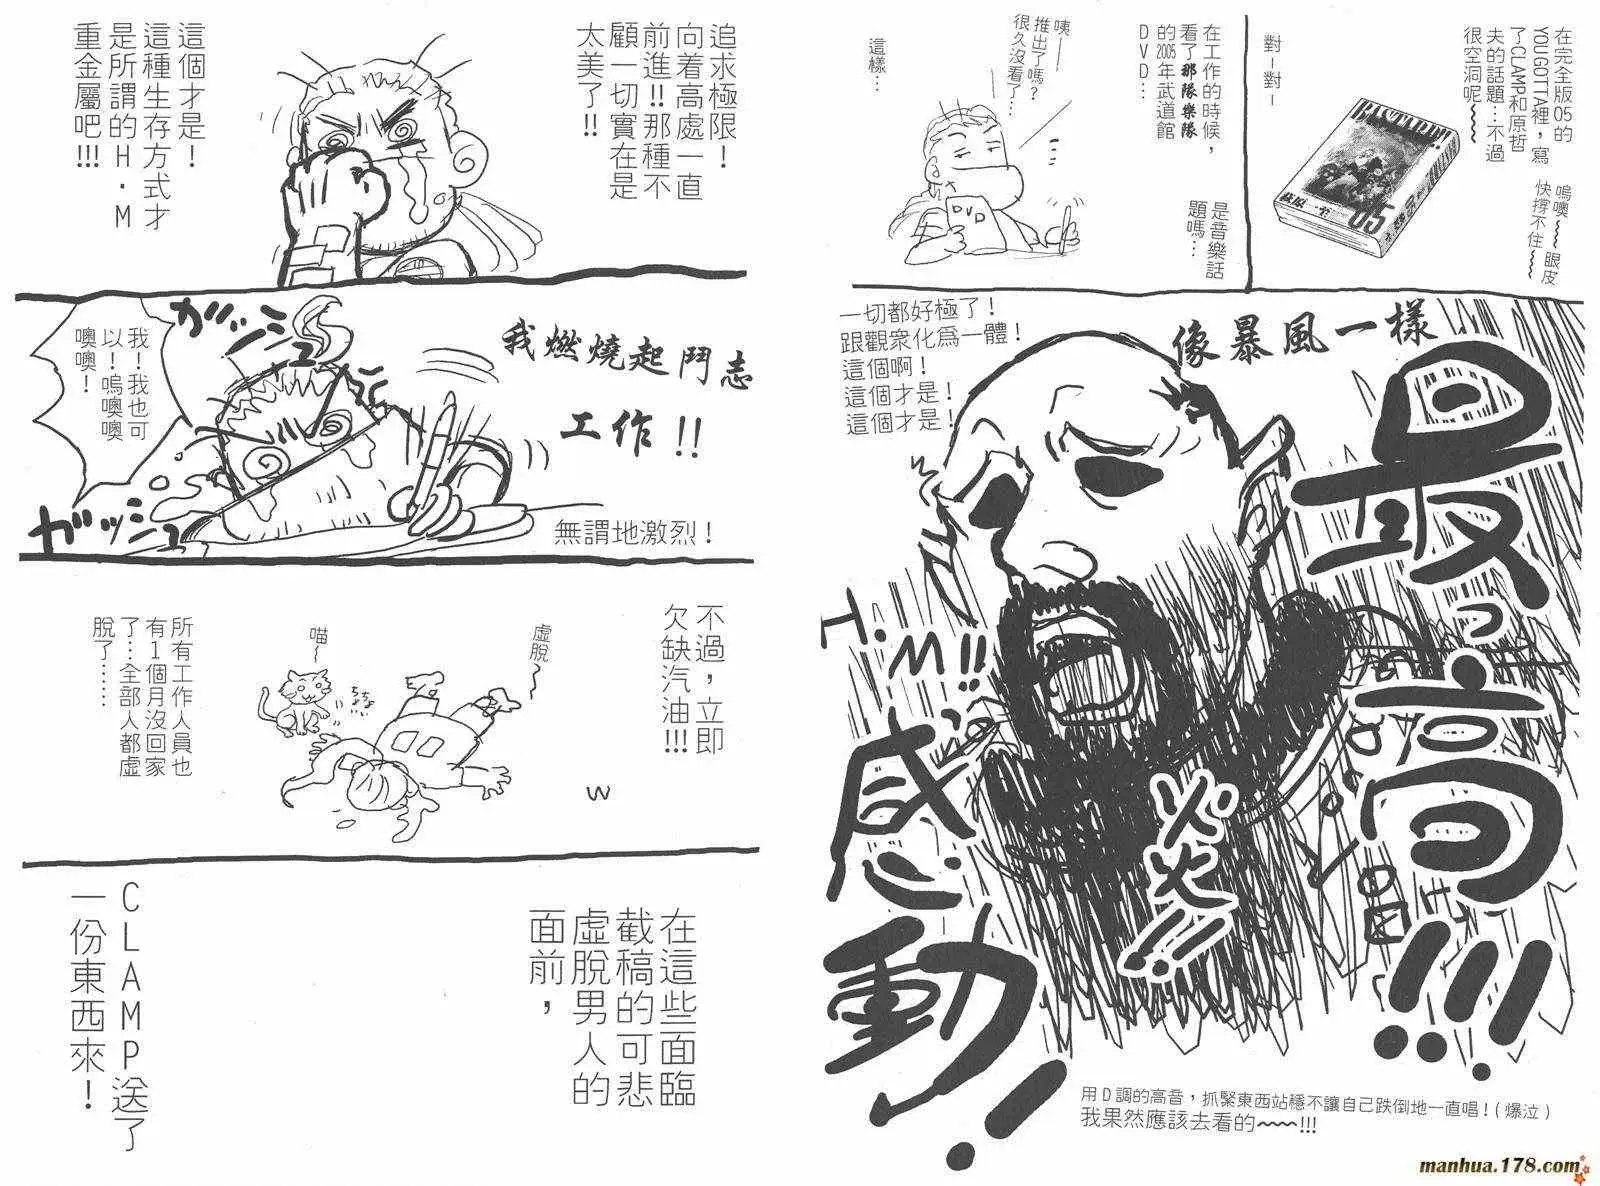 在完全版05的
YOUGOTTA裡，寫
了CLAMP和原哲
夫的話題…不過
很空洞呢~~~
嗚噢~~~眼皮
快撐不住~~~
對－對－
BASTARD!!
萩原一至
05
在工作的時候，
看了那隊樂隊
的2005年武道館
DVD…
是音樂話
題嗎…
咦——
推出了嗎?
很久沒看了…
這樣…
DVD
像暴風一樣
一切都好極了!
跟觀眾化為一體!
這個啊!
這個才是!
這個才是!
最っ高!!!
H.M!!
感動!!
火火!!
用D調的高音，抓緊東西站穩不讓自己跌倒地一直唱!(爆泣)
我果然應該去看的~~~!!!
追求極限!
向着高處一直
前進!!那種不
顧一切實在是
太美了!!
這個才是!
這種生存方式才
是所謂的H.M
重金屬吧!!!
我燃燒起鬥志
工作!!
ガッシュ
我!我也可
以!嗚噢噢
噢噢!
ガッシュ
無謂地激烈!
不過，立即
欠缺汽油!!!
虛脫~
喵~
所有工作人員也
有1個月沒回家
了…全部人都虛
脫了……
w
在這些面臨
截稿的可悲
虛脫男人的
面前，
CLAMP送了
一份東西來!
manhua.178.com